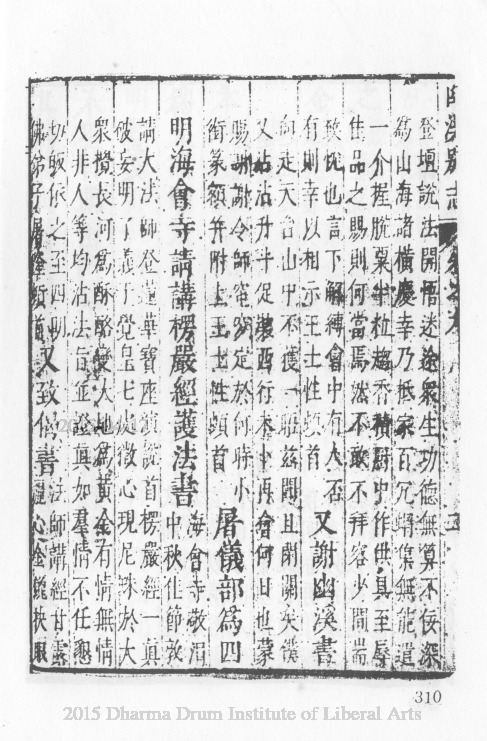 登壇說法開悟迷途衆生功德無算不佞深
爲山海諸橫慶幸乃抵家百冗蝟集無能遣
一介握脫粟半粒趨香積廚中作供具至辱
佳品之賜則何當焉然不敢不拜容少間耑
致忱也言下解縛會中有人否
有則幸以相示王士性頓首 又謝幽溪書
向走天台山中不獲一聆茲聞且閉關矣僕
又沾沾升斗促裝西行未卜再會何日也蒙
賜謝謝冷師窀穸定於何時小
銜篆額并附上王士性頓首 屠儀部爲四
明海會寺請講楞嚴經護法書 海會寺敬涓中秋佳節敦
請大法師登蓮華寶座演說首楞嚴經一眞
破妄明了義于覺皇七處徵心現尼珠於大
衆攪長河爲酥酪變大地爲黃金有情無情
人非人等均沾法旨並證眞如羣情不任懇
切皈依之至四明
佛弟子屠隆頓首 又致僧書 法師講經甘露心金鎞抉眼
310
2015 Dharma Drum Institute of Liberal Arts